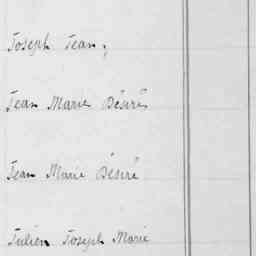 Joseph Jean,
Jean Marie Désiré
Jean Marie Désiré
Julien Joseph Marie